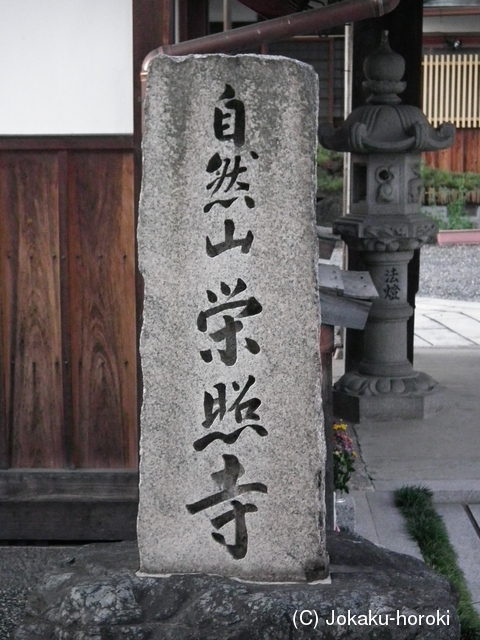 自然山栄照寺
法燈
(C) Jokaku-horoki